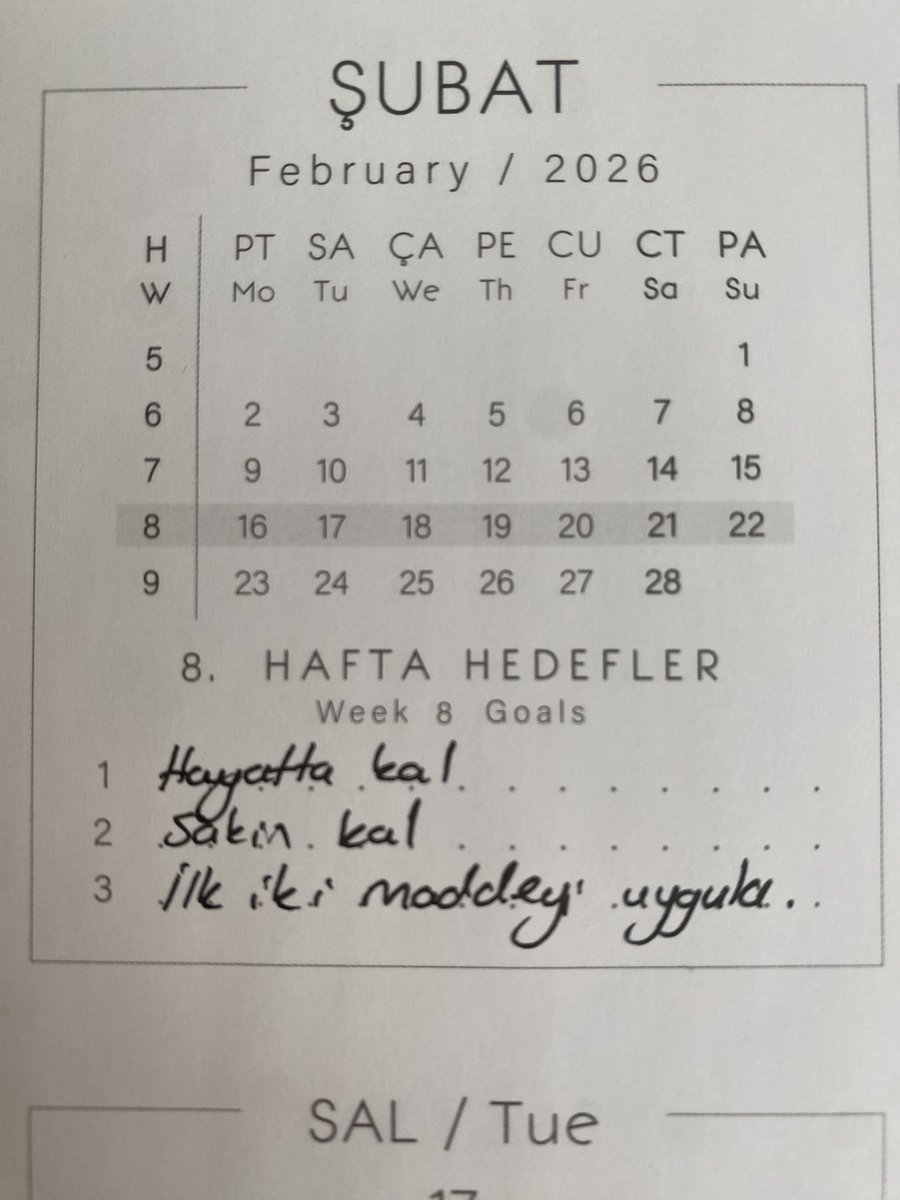 ŞUBAT
February / 2026
H PT SA ÇA PE CU CT PA
W Mo Tu We Th Fr Sa Su
5 1
6 2 3 4 5 6 7 8
7 9 10 11 12 13 14 15
8 16 17 18 19 20 21 22
9 23 24 25 26 27 28
8. HAFTA HEDEFLER
Week 8 Goals
1 Hayatta kal
2 Sakin kal
3 İlk iki maddeyi uygula
SAL / Tue
17